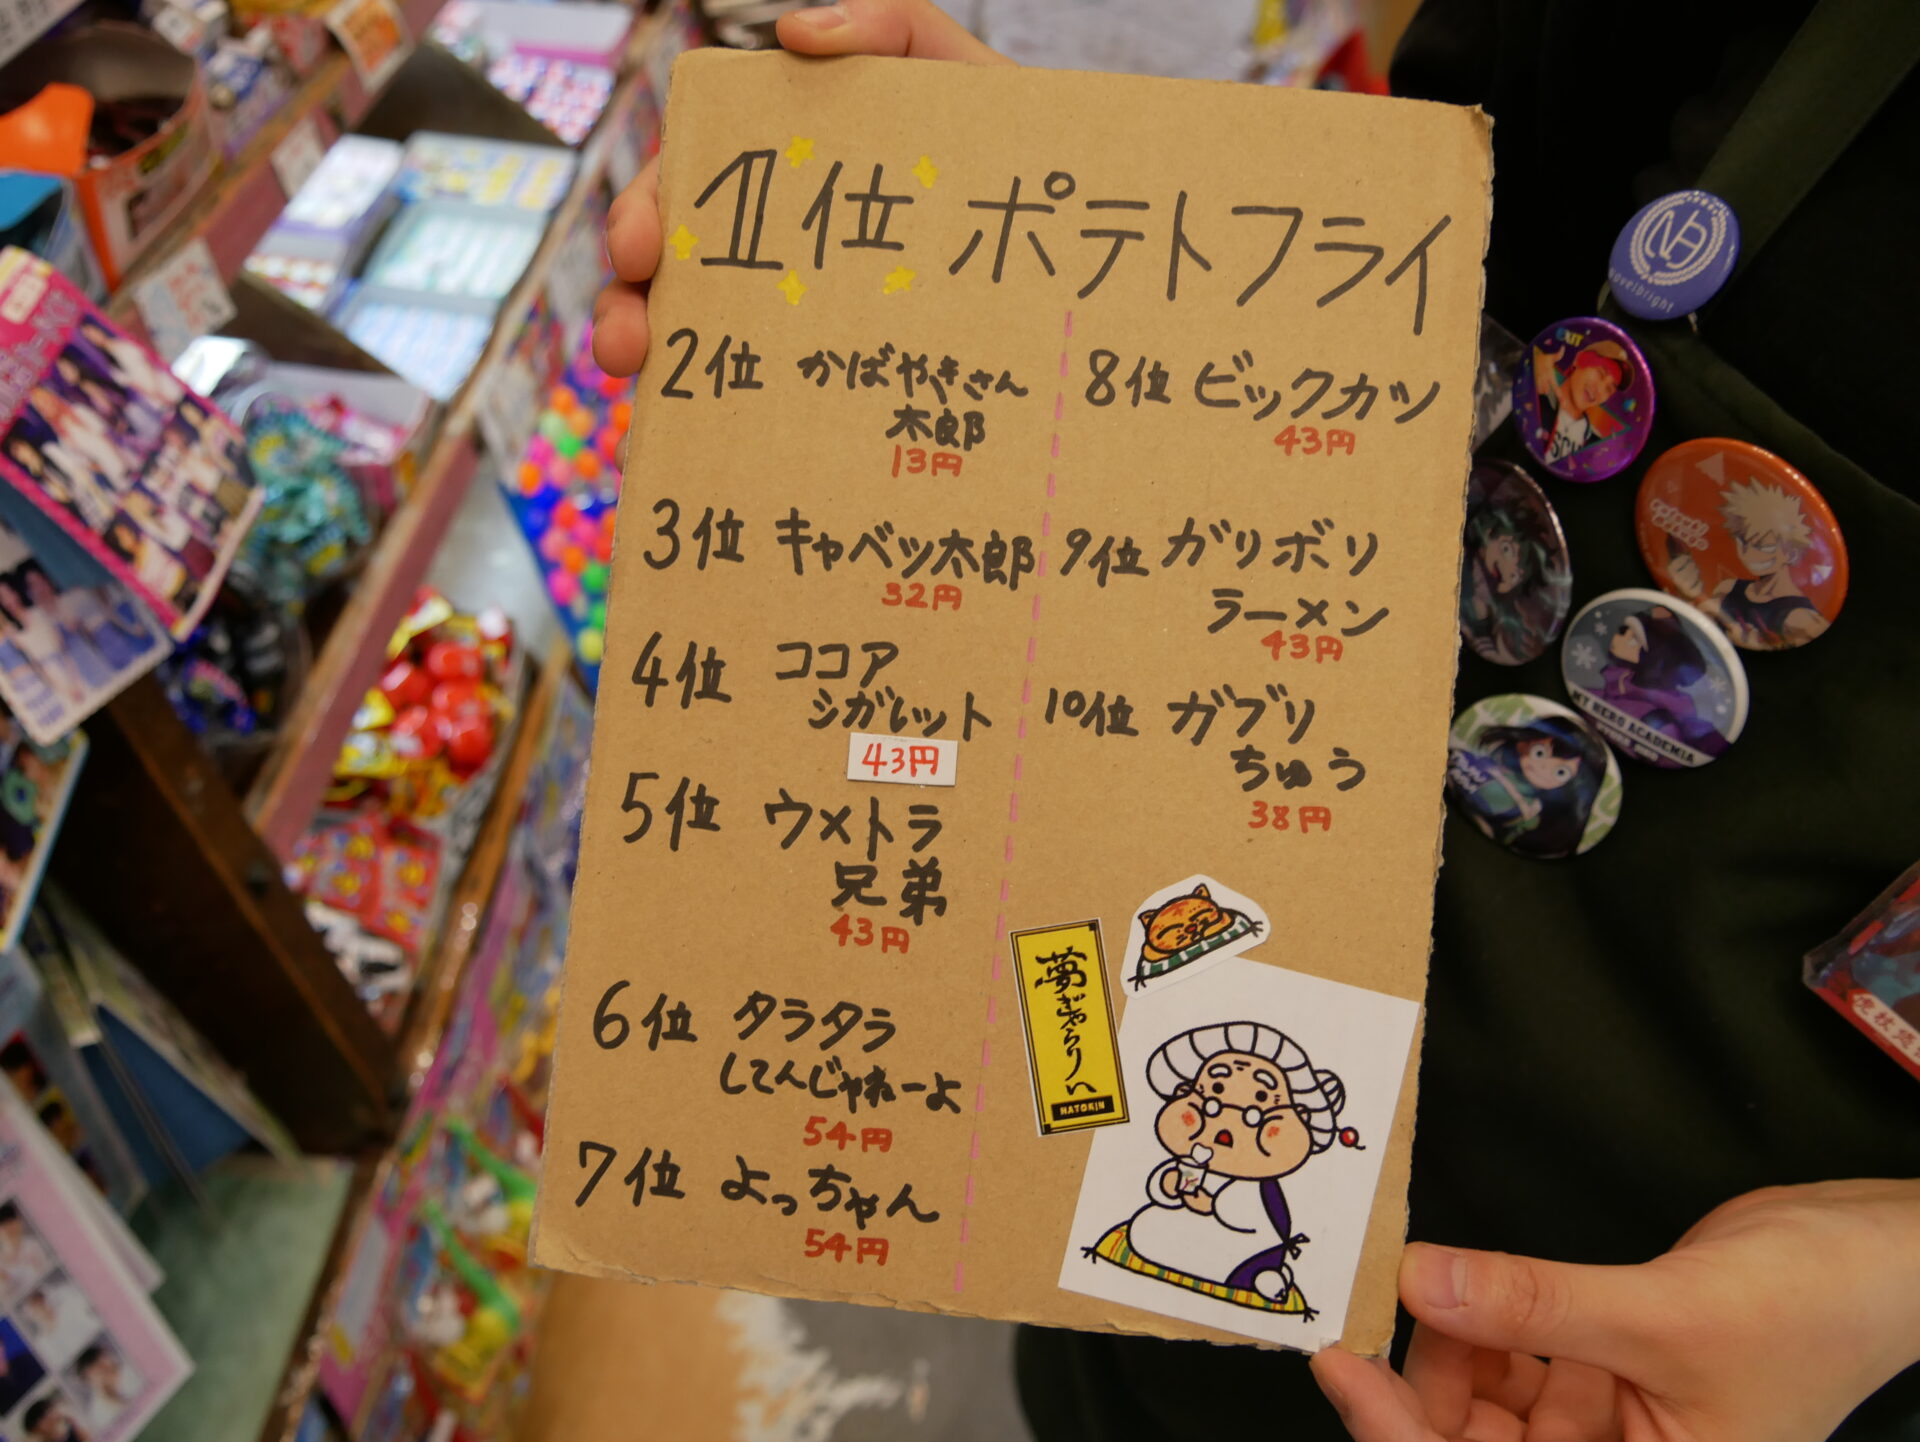 1位 ポテトフライ
2位 かばやきさん
太郎
13円
3位 キャベツ太郎
32円
4位 ココア
シガレット
43円
5位 ウメトラ
兄弟
43円
6位 タラタラ
してんじゃねーよ
54円
7位 よっちゃん
54円
8位 ビックカツ
43円
9位 ガリボリ
ラーメン
43円
10位 ガブリ
ちゅう
38円
夢ぎゃらりい
HATOKIN
novelbright
EXIT
MY HERO ACADEMIA